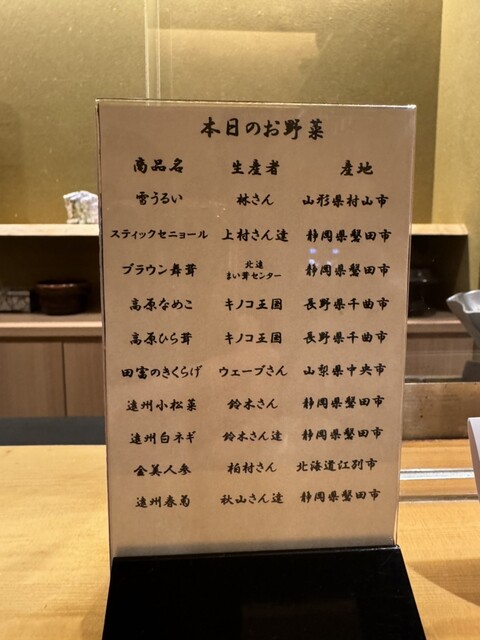 本日のお野菜
商品名 生産者 産地
雪うるい 林さん 山形県村山市
スティックセニョール 上村さん達 静岡県磐田市
ブラウン舞茸 北遠まい茸センター 静岡県磐田市
高原なめこ キノコ王国 長野県千曲市
高原ひら茸 キノコ王国 長野県千曲市
田富のきくらげ ウェーブさん 山梨県中央市
遠州小松菜 鈴木さん 静岡県磐田市
遠州白ネギ 鈴木さん達 静岡県磐田市
金美人参 柏村さん 北海道江別市
遠州春菊 秋山さん達 静岡県磐田市